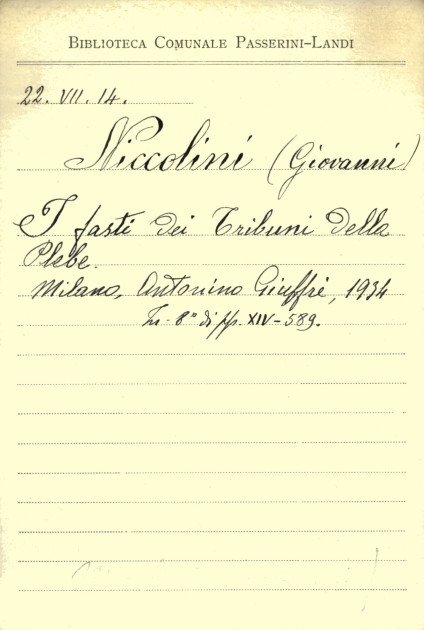 BIBLIOTECA COMUNALE PASSERINI-LANDI
22. VII. 14.
Niccolini (Giovanni)
I fasti dei Tribuni della
Plebe.
Milano, Antonino Giuffrè, 1934
In-8° di pp. XIV-589.